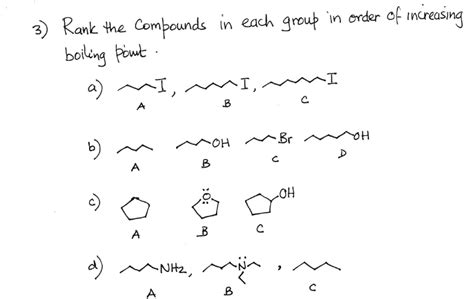 3) Rank the Compounds in each group in order of increasing
boiling point.
a) I, I, I
A B C
b) OH Br OH
A B C D
c) :O: OH
A B C
d) NH2, N̈ ,
A B C